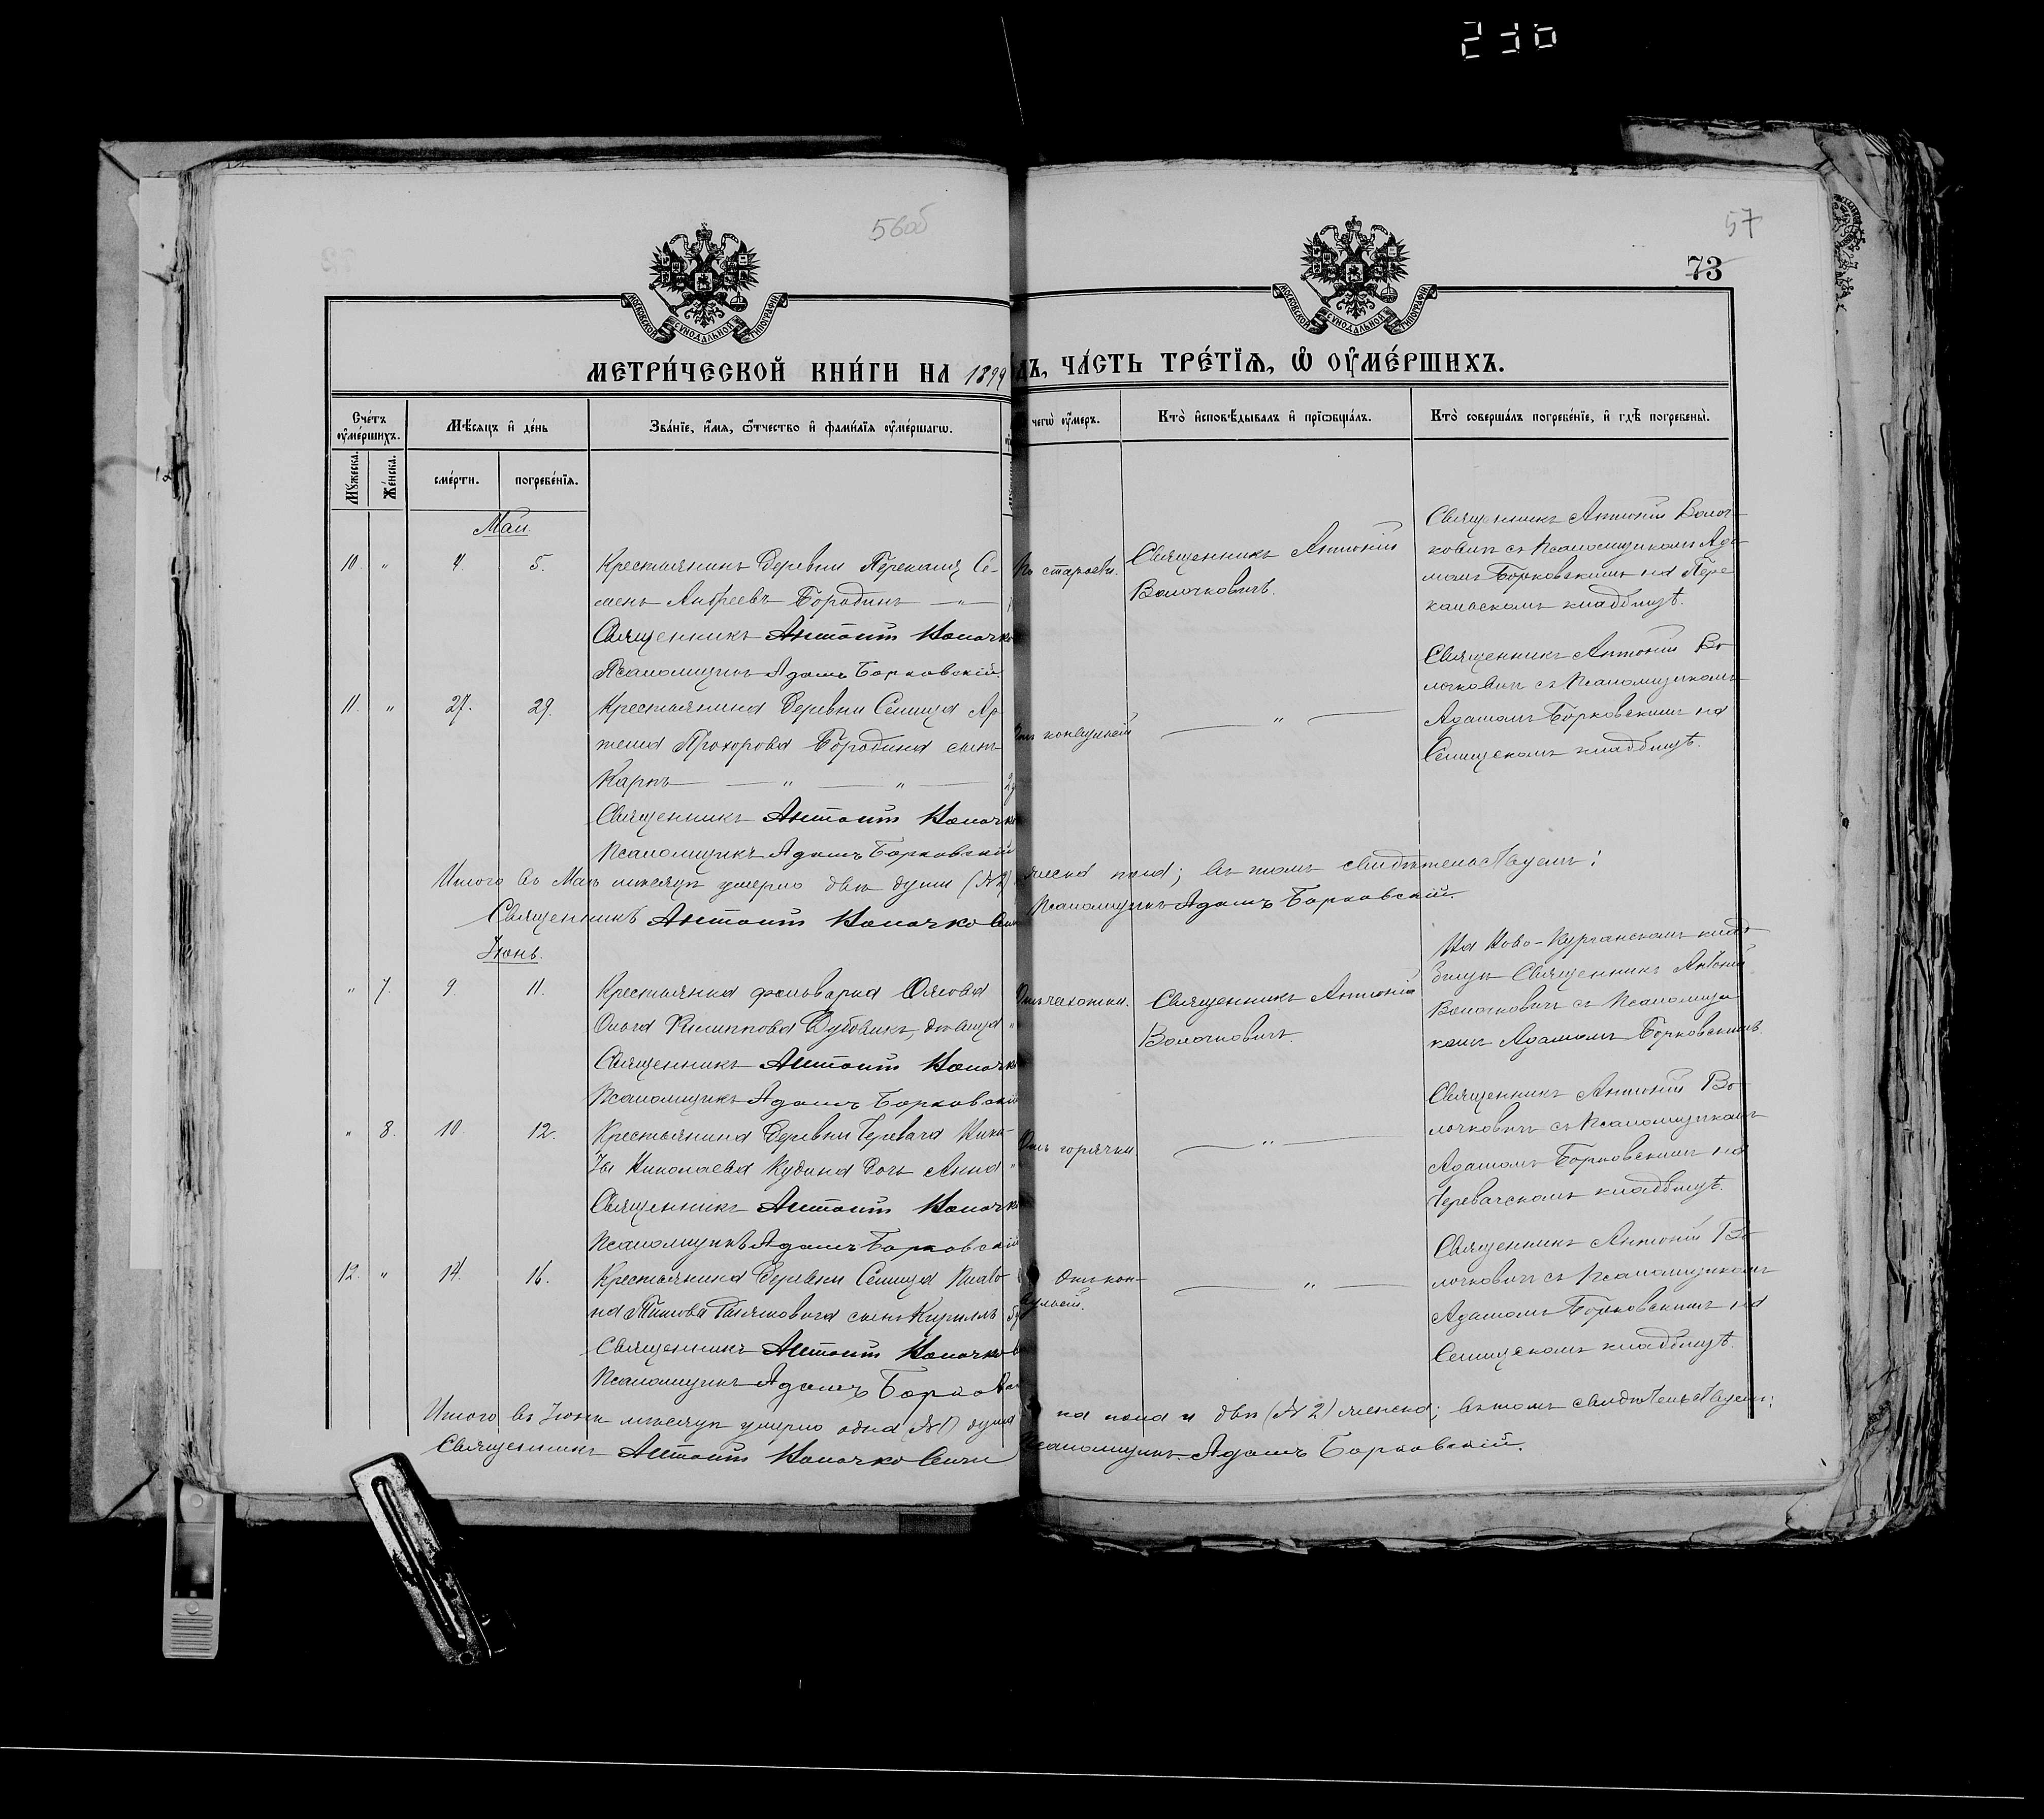 236
56об
57
73
МОСКОВСКОЙ СѴНОДАЛЬНОЙ ТИПОГРАФІИ
МОСКОВСКОЙ СѴНОДАЛЬНОЙ ТИПОГРАФІИ
МЕТРИ́ЧЕСКОЙ КНИ́ГИ НА 1899
ДЪ, ЧА́СТЬ ТРЕ́ТЇѦ, Ѡ҆ ОУ҆МЕ́РШИХЪ.
Сче́тъ оу҆ме́ршихъ.
Мѣ́сѧцъ и҆ де́нь
Зва́нїе, и҆́мѧ, ѻ҆́тчество и҆ фами́лїѧ оу҆ме́ршагѡ.
чегѡ̀ оу҆́меръ.
Кто̀ и҆сповѣ́дывалъ и҆ прїѡбща́лъ.
Кто̀ соверша́лъ погребе́нїе, и҆ гдѣ̀ погребены̀.
Мꙋ́жеска.
Же́нска.
сме́рти.
погребе́нїѧ.
Май.
10. " 4. 5.
Крестьянинъ деревни Перекаля Се-
менъ Андреевъ Бородинъ — " —
Священникъ Антоній Волочко
Псаломщикъ Адамъ Борковскій.
По старости.
Священникъ Антоній
Волочковичъ.
Священникъ Антоній Волоч-
ковичъ съ Псаломщикомъ Ада-
момъ Борковскимъ на Пере
кальскомъ кладбищѣ.
11. " 27. 29.
Крестьянина деревни Селища Ар-
тема Прохорова Бородина сынъ
Карпъ — " — " —
Священникъ Антоній Волочко
Псаломщикъ Адамъ Борковскій
Отъ конвульсій
— " —
Священникъ Антоній Во
лочковичъ съ Псаломщикомъ
Адамомъ Борковскимъ на
Селищскомъ кладбищѣ.
Итого въ Маѣ мѣсяцѣ умерло двѣ души (№2)
ческа пола; въ томъ свидѣтельствуемъ:
Священникъ Антоній Волочкович
Псаломщикъ Адамъ Борковскій.
Іюнь.
" 7. 9. 11.
Крестьянка фольварка
Ольга Филиппова Дубовикъ, вдовица "
Священникъ Антоній Волочко
Псаломщикъ Адамъ Борковскій
Отъ чахотки.
Священникъ Антоній
Волочковичъ.
На Ново-Курганскомъ клад-
бищѣ Священникъ Антоній
Волочковичъ съ Псаломщи
комъ Адамомъ Борковскимъ.
" 8. 10 12.
Крестьянина деревни Черевача Ники-
ты Николаева Кудина дочь Анна "
Священникъ Антоній Волочко
Псаломщикъ Адамъ Борковскій
Отъ горячки
— " —
Священникъ Антоній Во
лочковичъ съ Псаломщикомъ
Адамомъ Борковскимъ на
Черевачскомъ кладбищѣ.
12. " 14. 16.
Крестьянина деревни Селища Плато-
на сынъ Кириллъ
Священникъ Антоній Волочков
Псаломщикъ Адамъ Борковс
Отъ кон-
вульсій.
— " —
Священникъ Антоній Во
лочковичъ съ Псаломщикомъ
Адамомъ Борковскимъ на
Селищскомъ кладбищѣ.
Итого въ Іюнѣ мѣсяцѣ умерло одна (№1) душа
ка пола и двѣ (№2) женска; въ томъ свидѣтельствуемъ:
Священникъ Антоній Волочкович
Псаломщикъ Адамъ Борковскій.